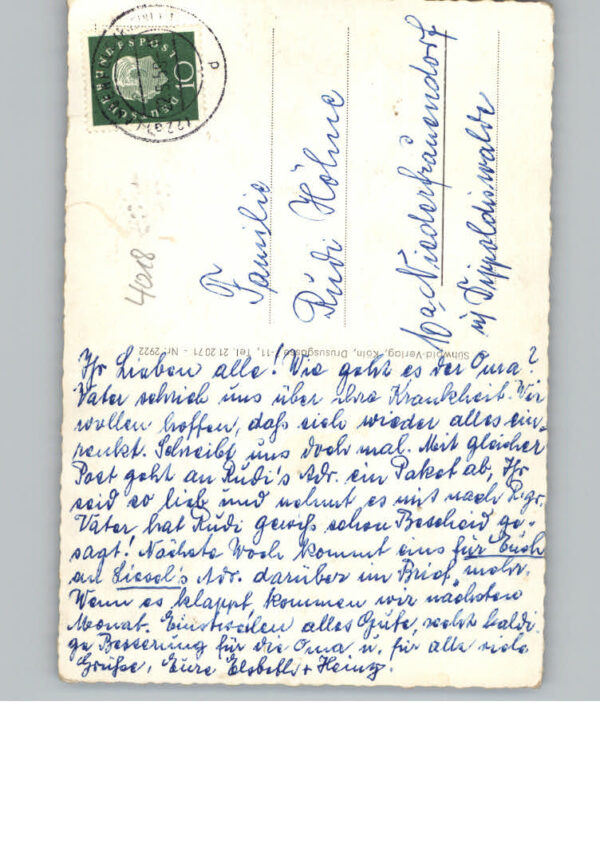 DEUTSCHE BUNDESPOST
10
4018
Familie
Rudi Höhne
Niederfrauendorf
Dippoldiswalde
Sühwold-Verlag, Köln, Drususgasse 7-11, Tel. 21 20 71 - Nr. 2922
Ihr Lieben alle! Wie geht es der Oma?
Vater schrieb uns über ihre Krankheit. Wir
wollen hoffen, daß sich wieder alles ein-
renkt. Schreibt uns doch mal. Mit gleicher
Post geht an Rudi's Adr. ein Paket ab, Ihr
seid so lieb und nehmt es mit nach
Vater hat Rudi gewiß schon Bescheid ge-
sagt! Nächste Woch kommt eins für Euch
an Liesel's Adr. darüber im Brief mehr.
Wenn es klappt, kommen wir nächsten
Monat. Einstweilen alles Gute, recht baldi-
ge Besserung für die Oma u. für alle viele
Grüße, Eure + Heinz.